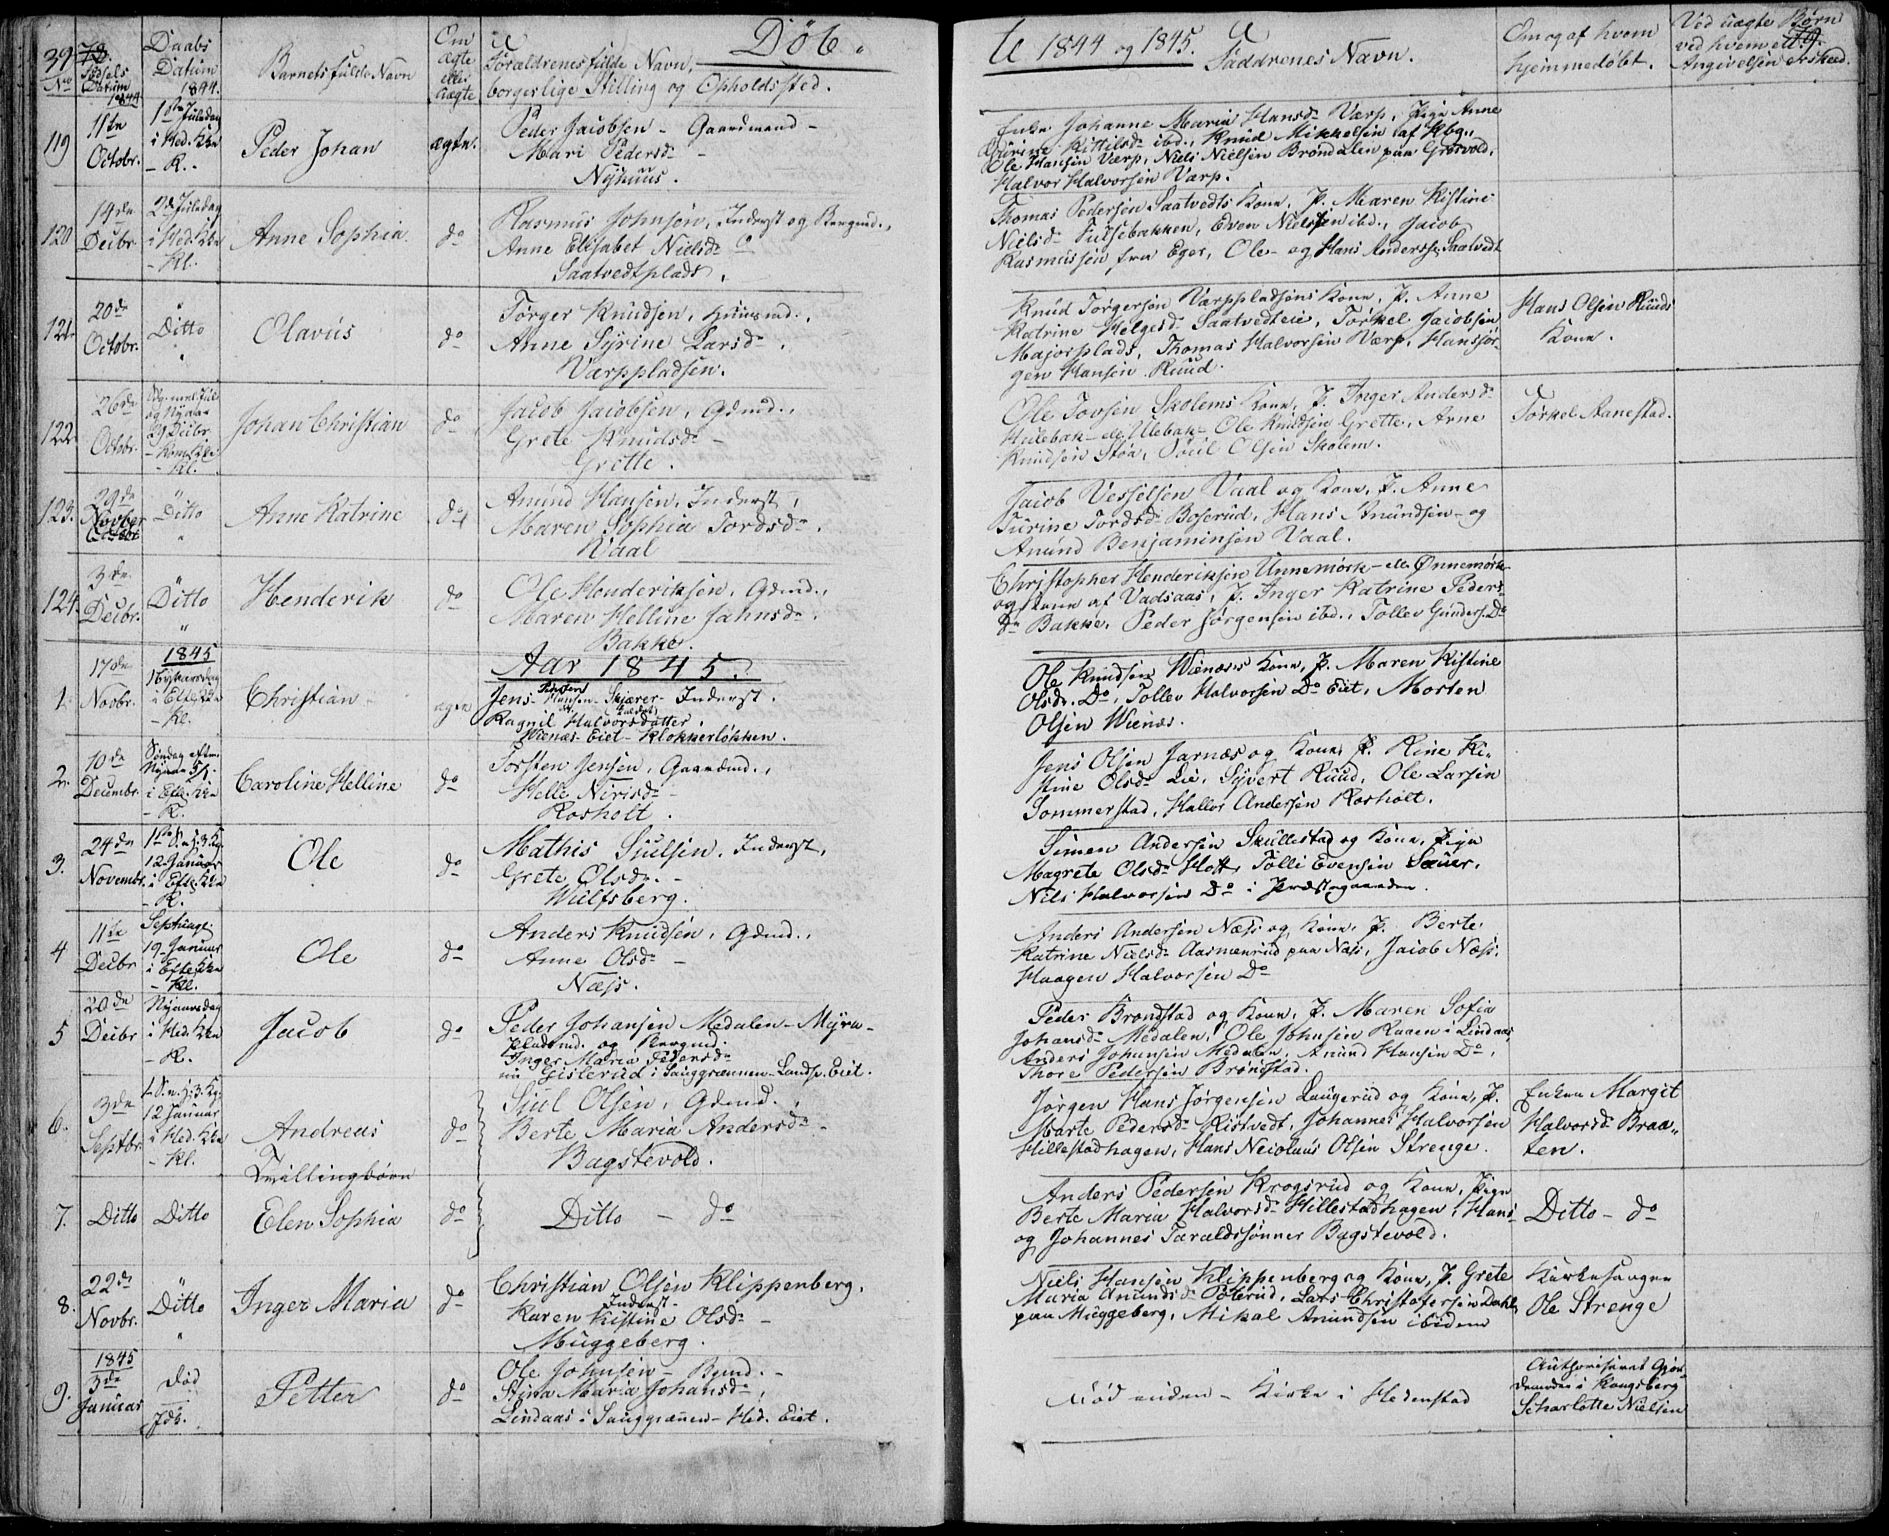 39
78.
Døb.
te 1844 og 1845.
79.
No
Fødsels Datum 1844
Daabs Datum 1844.
Barnets fulde Navn
Om ægte eller uægte
Forældrenes fulde Navn, borgerlige Stilling og Opholdssted.
Faddrenes Navn.
Om og af hvem hjemmedøbt.
Ved uægte Børn ved hvem Angivelsen er skeed.
119
11te Octobr.
1ste Juledag i Hed. Kke - K. -
Peder Johan
ægte.
Peder Jacobsen - Gaardmand -
Mari Pedersdr -
Nyhuus.
Enke Johanne Maria Hansdr Værp, Pige Anne
Kittilsdr ibd., Knud Mikkelsen af Kbg.,
Ole Hansen Værp, Niels Nielsen Brøndalen paa Grosvold,
Halvor Halvorsen Værp.
120
14de Decbr
2d Juledag i Hed. Kke - Kl.
Anne Sophia
do
Rasmus Johnsen, Inderst og Bergmd.,
Anne Elisabet Nielsdr
Saatvedtplads.
Thomas Pedersen Saatvedts Kone, P. Maren Kistine
Nielsdr Fulsebakken, Even Nielsen ibd., Jacob
Rasmussen fra Eger, Ole - og Hans Anderss. Saatvedt
121.
20de Octobr.
Ditto
Olavus
do
Torger Knudsen, Huusmd.,
Anne Syrine Larsdr,
Værppladsen.
Knud Torgersen Værppladsens Kone, P. Anne
Katrine Helgesd. Saatvedteie, Torkel Jacobsen
Majorplads, Thomas Halvorsen Værp, Hans Jør-
gen Hansen Ruud.
Hans Olsen Ruuds
Kone.
122
26de Octobr.
og Nyaar 29 Decbr - Kl.
Johan Christian
do
Jacob Jacobsen, Gdmd.,
Grete Knudsdr -
Grette.
Ole Tovsen Skolems Kone, P. Inger Andersdr
Hulebak - ell. Ulebak - Ole Knudsen Grette, Arne
Knudsen Støa, Poul Olsen Skolem.
Torkel Aanestad.
123.
29de Novber
Ditto
Anne Katrine
do
Anund Hansen, Inderst,
Maren Sophia Tordsdr
Vaal
Jacob Vesselsen Vaal og Kone, P. Anne
Turine Tordsdr Boserud, Hans Anundsen - og
Anund Benjaminsen Vaal.
124.
3de Decbr.
Ditto
Henderik
do
Ole Henderiksen, Gdmd.,
Maren Helline Jahnsdr.
Bakke.
Christopher Henderiksen Unnemork - ell. Ønnemørk
og Kone af Vadsaas, P. Inger Katrine Peders-
dr Bakke, Peder Jørgensen ibd., Tollev Gunders. Do
Aar 1845.
1.
17de Novbr.
1845
Nyaarsdag i Efte. Kke - Kl.
Christian
Jens Hansen - Skjærer - Inderst.
Ragnil Halvorsdatter.
Wienæs Eiet - Klokkerløkken.
Ole Knudsen Wienæs's Kone, P. Maren Kistine
Olsdr. Do, Tollev Halvorsen Do Eiet, Morten
Olsen Wienæs.
2.
10de Decembr.
Søndag efter Nyaar 5/1. i Efte. Kke - K.
Caroline Helline
do
Torsten Jensen, Gaardmd.,
Helle Nirisdr -
Rosholt.
Jens Olsen Jarnæs og Kone, P. Kine Ki-
stine Olsdr Lie, Syvert Ruud, Ole Larsen
Sommerstad, Hallvor Andersen Rosholt.
3.
24de Novembr.
12 Januar i Efte. Kke - K.
Ole
do
Mathis Sjulsen, Inderst,
Grete Olsdr. -
Wulfsberg.
Simen Andersen Skullestad og Kone, Pige
Magrete Olsdr Hotte, Tolli Evensen Sauer,
Niels Halvorsen Do i Præstegaarden.
4
11te Decbr
Septuag. 19 Januar i Efte Kke - Kl.
Ole
do
Anders Knudsen, Gdmd.,
Anne Olsdr -
Næss.
Anders Andersen Næss og Kone, P. Berte
Katrine Nielsdr Aasmenrud paa Næss, Jacob Næss.
Haagen Halvorsen Do
5
20de Decbr
Nyaarsdag i Hed. Kke - K.
Jacob
do
Peder Johansen Medalen - Myra -
Pladsmd. og Bergmd.
Inger Maria Pedersdr
nu Gislerud i Jauggrænnen - Landsv. Eiet.
Peder Brøndstad og Kone, P. Maren Sofia
Johansdr Medalen, Ole Johnsen Raaen i Lindaas,
Anders Johansen Medalen, Anund Hansen Do,
Thore Pedersen Brøndstad.
6.
3de Septbr.
12 Januar i Hed. Kke - Kl.
Andreas
Tvillingbørn
do
Sjul Olsen, Gdmd.,
Berte Maria Andersdr -
Bagstevold.
Jørgen Hans Jørgensen Laugerud og Kone, P.
Marte Pedersdr Ristvedt, Johannes Halvorsen
Hillestadhagen, Hans Nicolaus Olsen Strenge.
Enken Margit
Halvorsdr Braa-
ten.
7.
Ditto
Ditto
Elen Sophia
do
Ditto - do
Anders Pedersen Krogsrud og Kone, Pige
Berte Maria Halvorsdr Hillestadhagen, Hans
og Johannes Taraldssønner Bagstevold.
Ditto - do
8.
22de Novbr.
Ditto
Inger Maria
do
Christian Olsen Klippenberg.
Inderst -
Karen Kistine Olsdr -
Muggeberg.
Niels Hansen Klippenberg og Kone, P. Grete
Maria Anundsdr Østerud, Lars Christofersen Dahl
paa Muggeberg, Mikal Anundsen ibidem
Kirkesanger
Ole Strenge
9.
1845
3de Januar
Død
Petter
do
Ole Johnsen - Bgmd. -
Stina Maria Johansdr,
Lindaas i Jauggrænnen - Hed. Eiet.
Død uden - Kirke i Hedenstad
Authoriseret Gjor-
demoder i Kongsberg
Scharlotte Nielsen